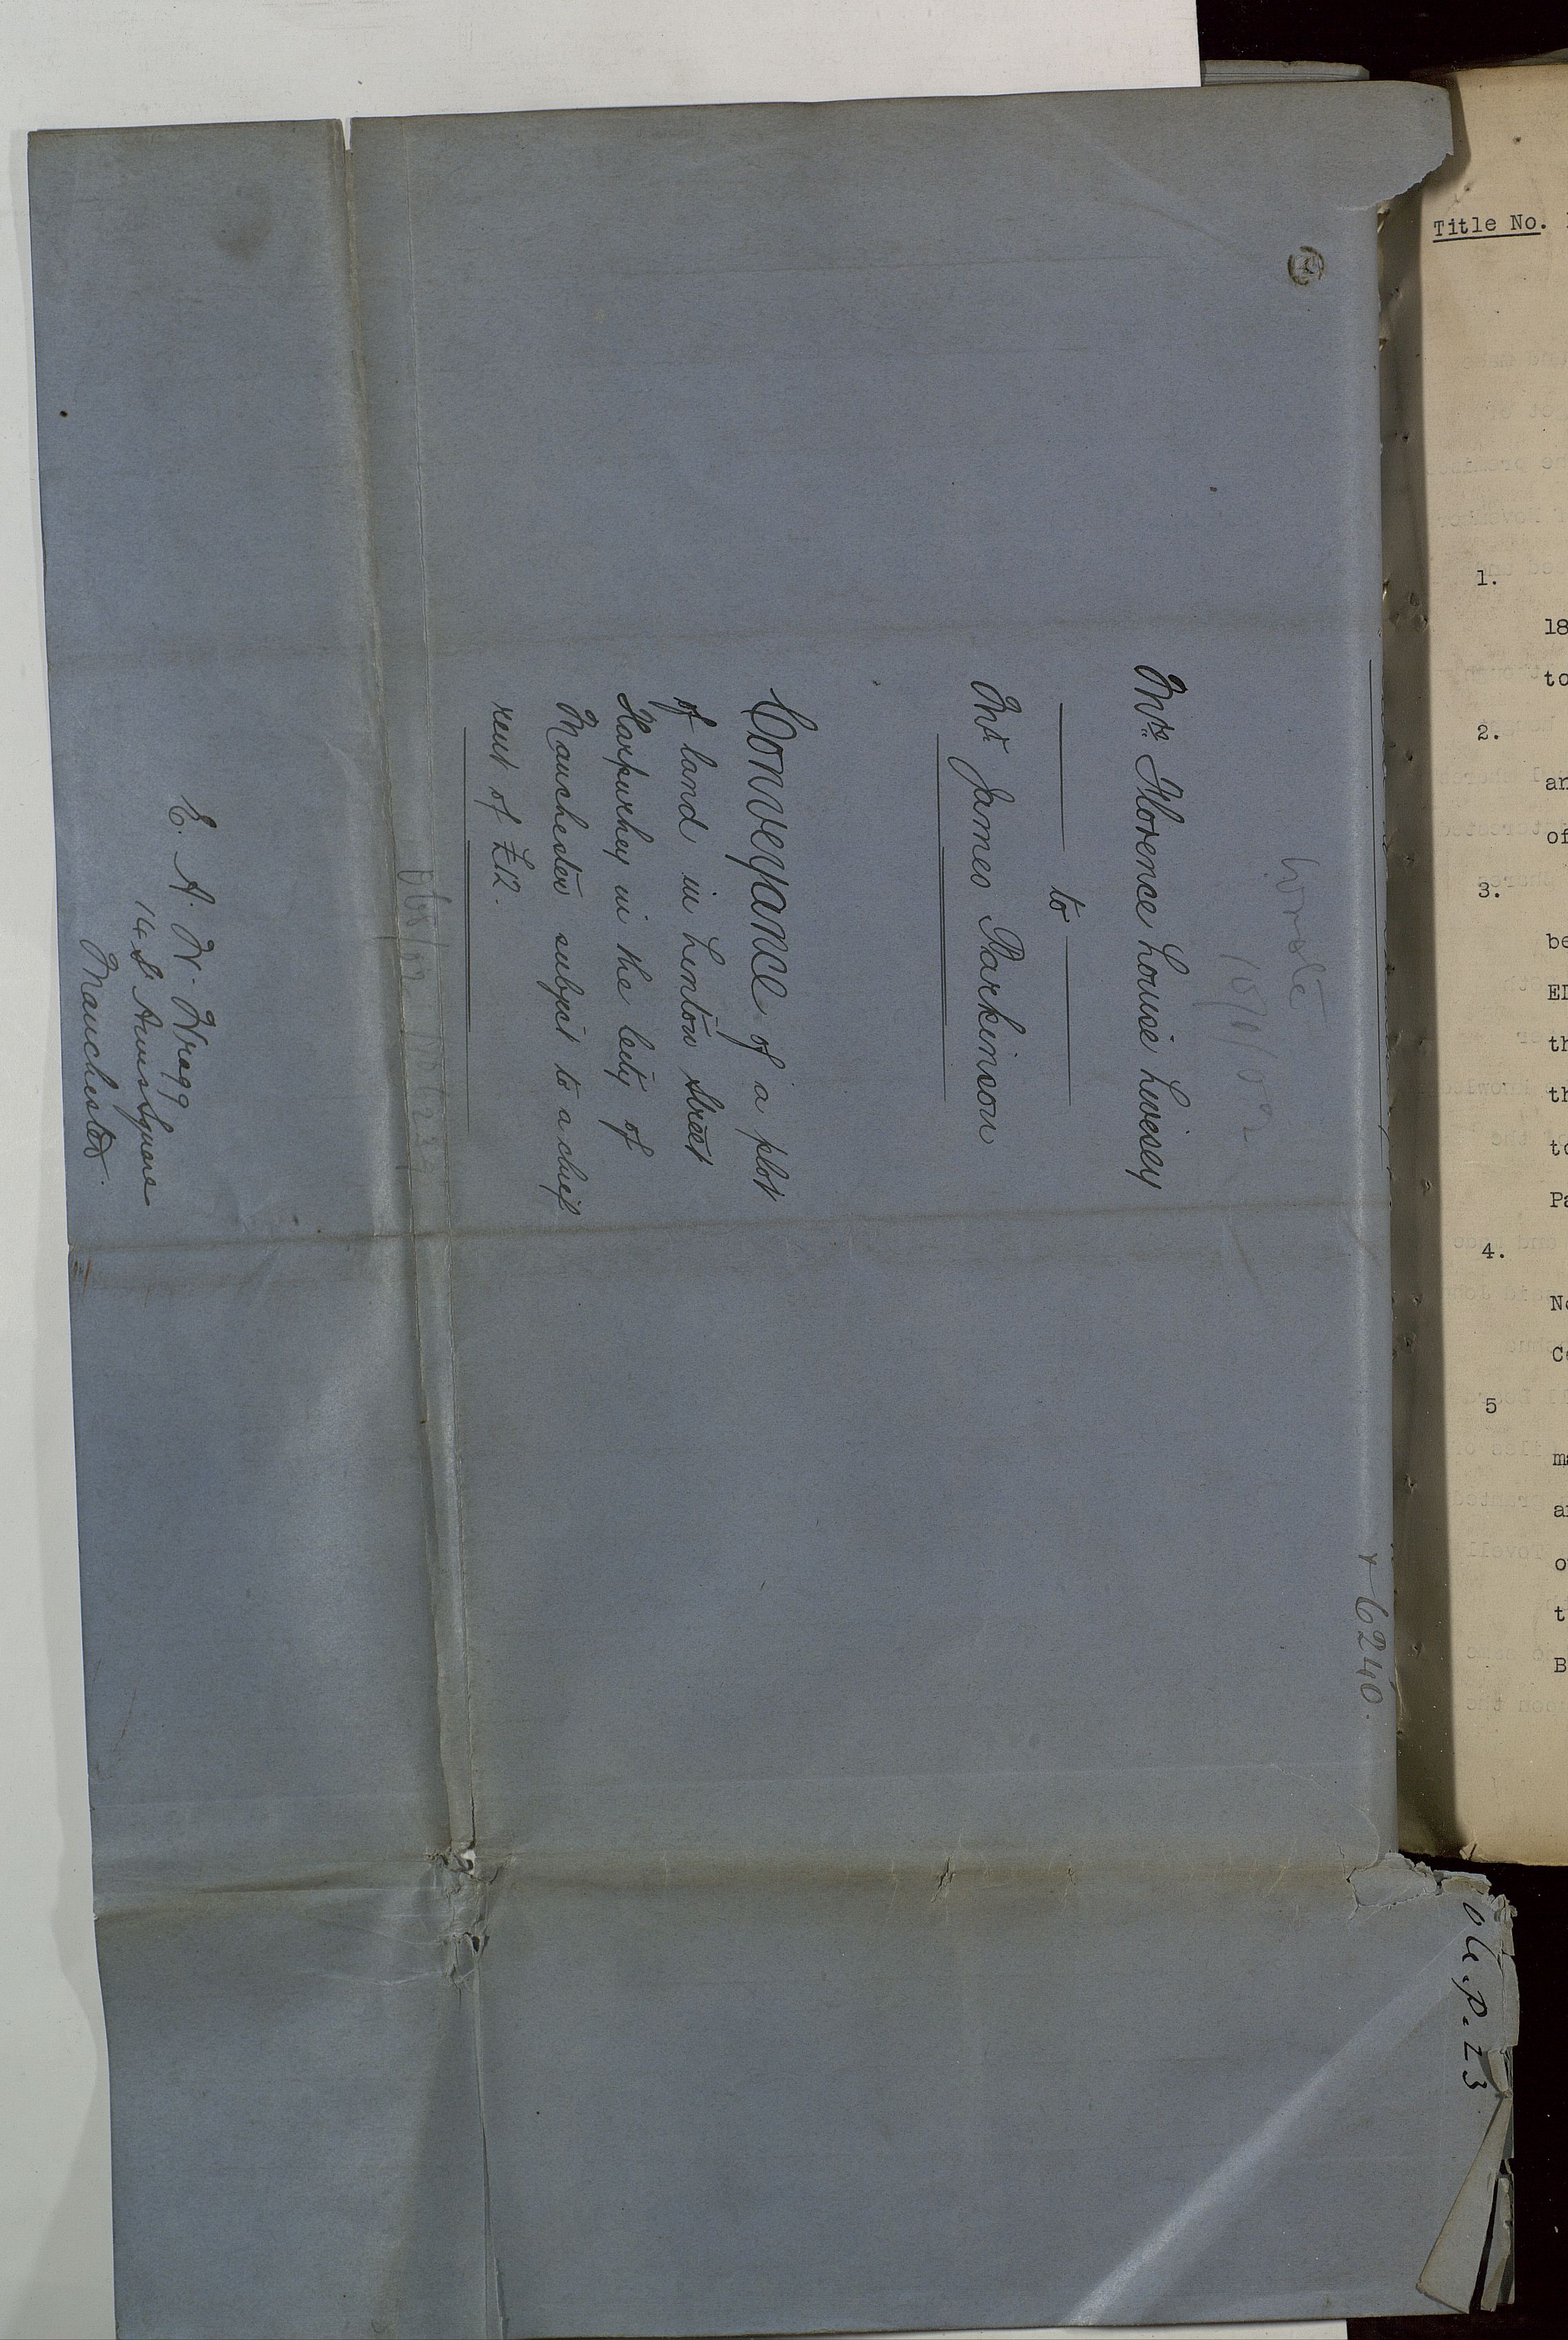 wrote
15/1/02
Mrs. Florence Louise Livesey
to
Mr. James Parkinson
Conveyance of a plot
of land in Linton Street
Harpurhey in the City of
Manchester subject to a chief
rent of £12.
E. A. W. Wragg
14 St Anns Square
Manchester.
6240.
P. 23
Title No.
1.
18
to
2.
an
of
3.
be
th
th
to
Pa
4.
No
Co
5
ma